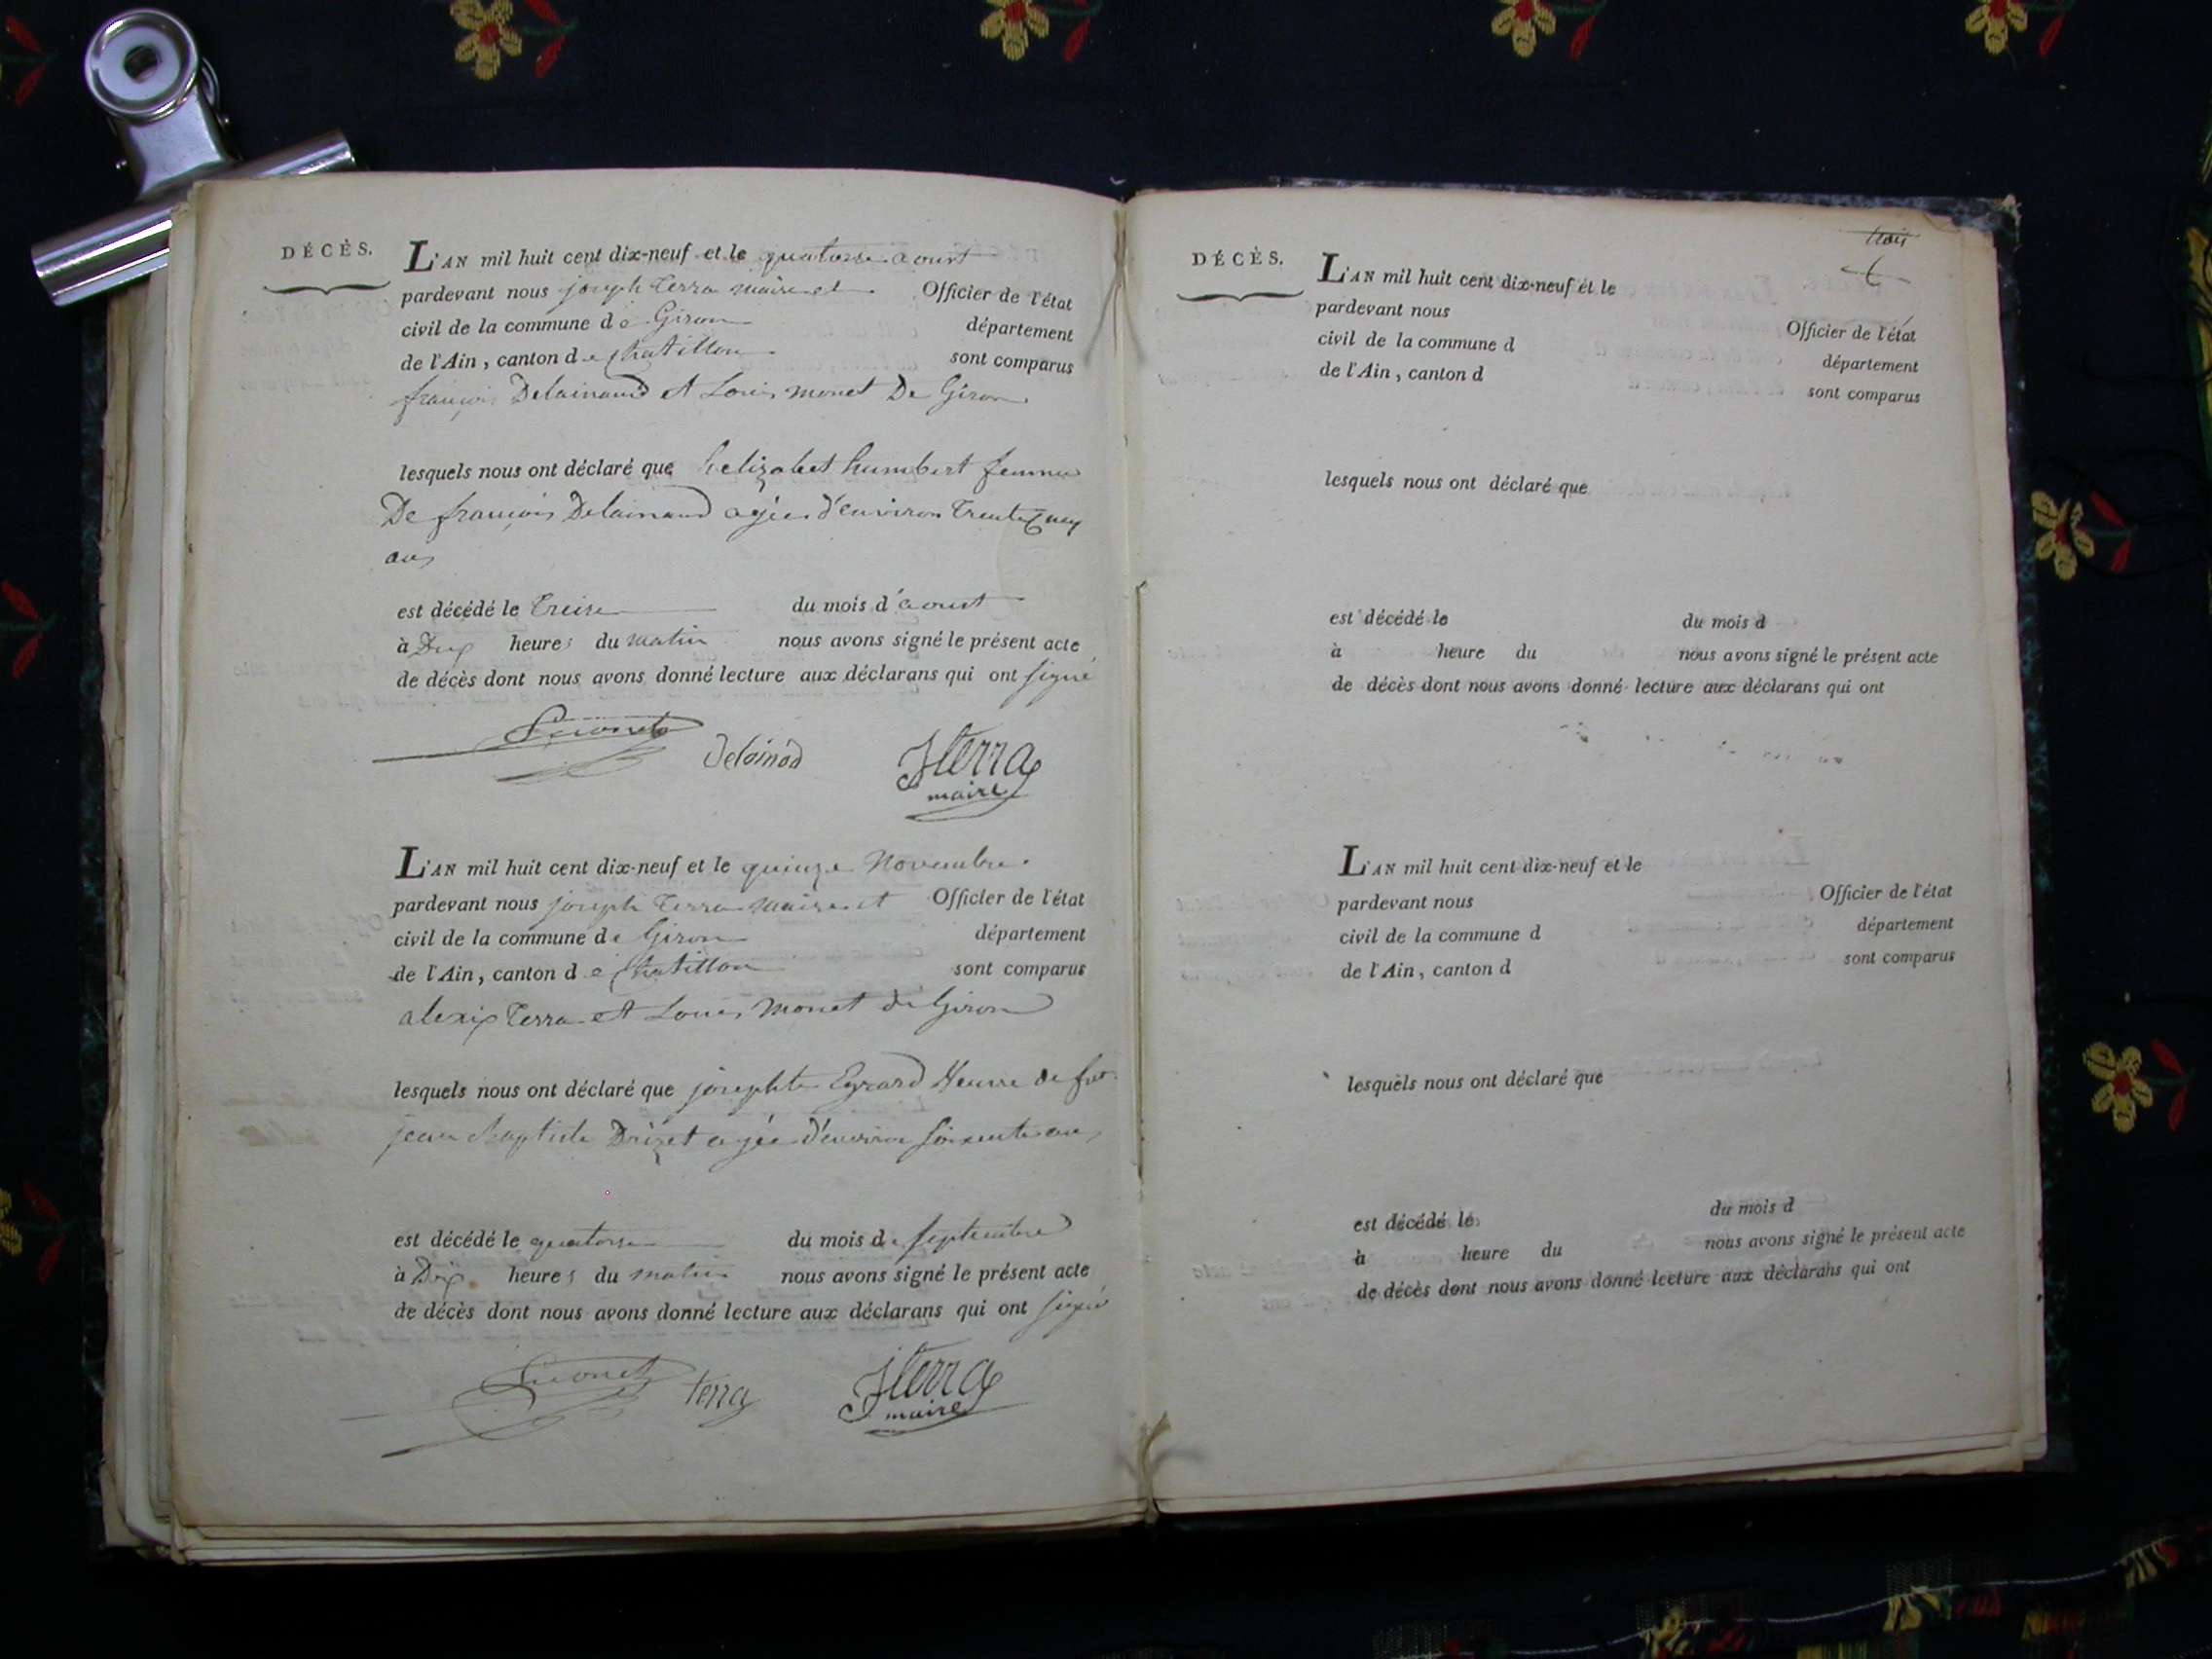 DÉCÈS.
L'AN mil huit cent dix-neuf et le quatorze aoust
pardevant nous joseph Terra maire et Officier de l'état
civil de la commune de Giron département
de l'Ain, canton de chatillon sont comparus
françois Delainaud et Louis monet De Giron
lesquels nous ont déclaré que helizabet humbert femme
De françois Delainaud agée d'environ Trente
ans
est décédé le Treize du mois d'aoust
à Dix heures du matin nous avons signé le présent acte
de décès dont nous avons donné lecture aux déclarans qui ont signé
Delainod Jterra
maire
L'AN mil huit cent dix-neuf et le quinze Novembre
pardevant nous joseph Terra maire et Officier de l'état
civil de la commune de Giron département
de l'Ain, canton de chatillon sont comparus
alexis Terra et Louis monet de Giron
lesquels nous ont déclaré que josephte Egrard Veuve de feu
jean Baptiste Drizet agée d'environ soixente ans
est décédé le quatorze du mois de septembre
à Dix heures du matin nous avons signé le présent acte
de décès dont nous avons donné lecture aux déclarans qui ont signé
terra Jterra
maire
trois
DÉCÈS.
L'AN mil huit cent dix-neuf et le
pardevant nous Officier de l'état
civil de la commune d département
de l'Ain, canton d sont comparus
lesquels nous ont déclaré que
est décédé le du mois d
à heure du nous avons signé le présent acte
de décès dont nous avons donné lecture aux déclarans qui ont
L'AN mil huit cent dix-neuf et le
pardevant nous Officier de l'état
civil de la commune d département
de l'Ain, canton d sont comparus
lesquels nous ont déclaré que
est décédé le du mois d
à heure du nous avons signé le présent acte
de décès dont nous avons donné lecture aux déclarans qui ont